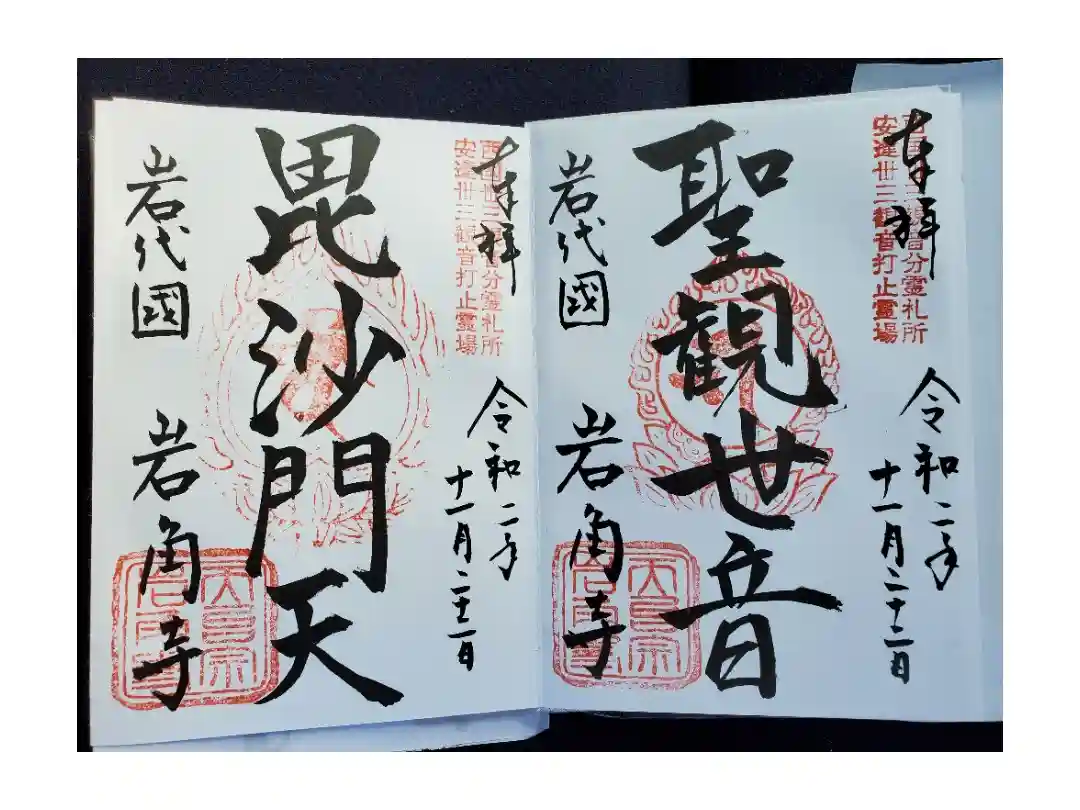 奉拝
西国卅三観音分霊札所
安達卅三観音打止霊場
令和二年
十一月二十二日
聖観世音
岩代國 岩角寺
奉拝
西国卅三観音分霊札所
安達卅三観音打止霊場
令和二年
十一月二十二日
毘沙門天
岩代國 岩角寺